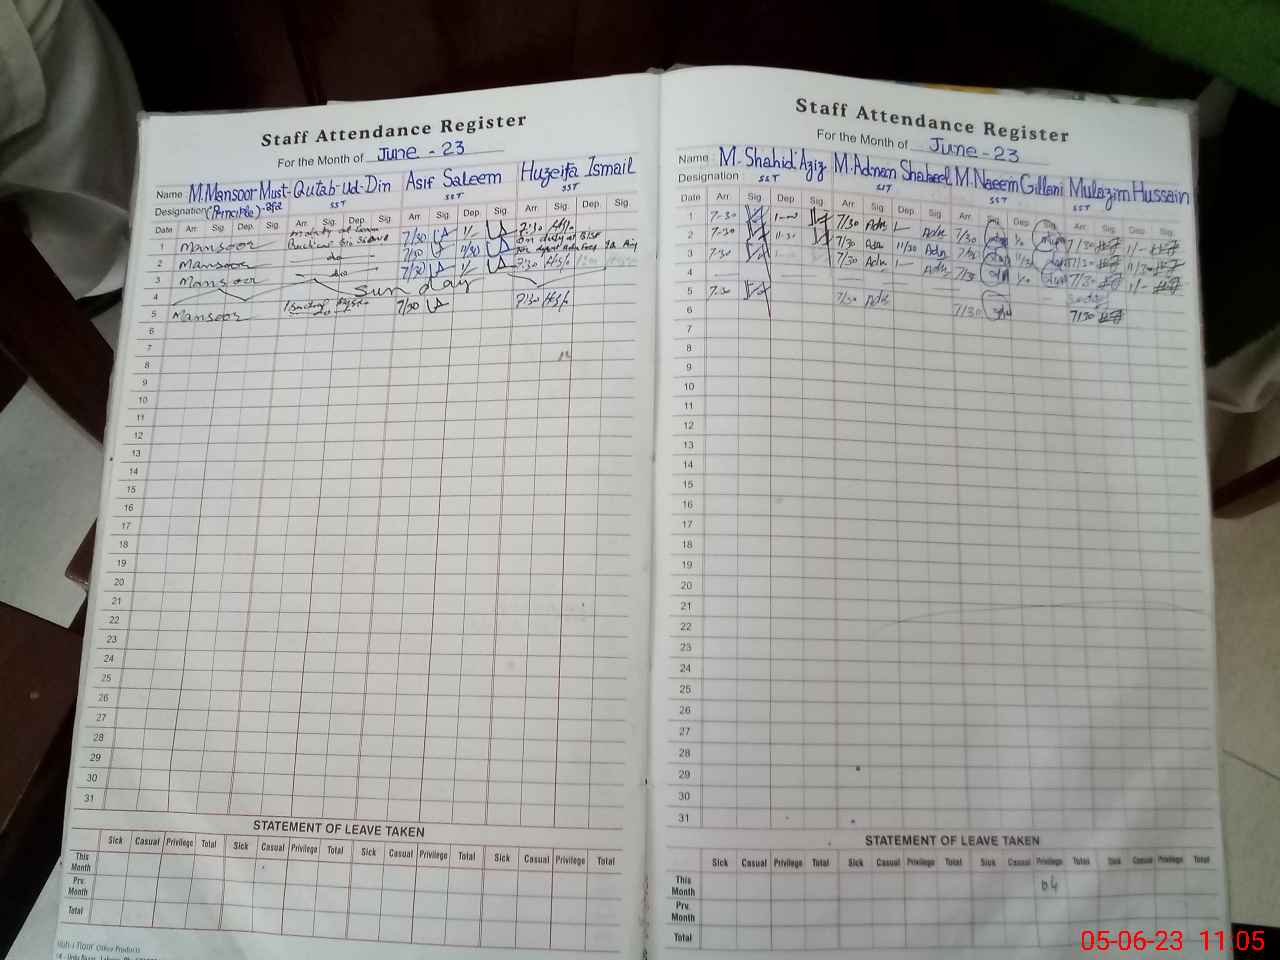 Staff Attendance Register
For the Month of June - 23
Name M. Mansoor Must- Qutab-ud-Din Asif Saleem Huzeifa Ismail
Designation (Principle) SST SST SST
Date Arr. Sig. Dep. Sig. Arr. Sig. Dep. Sig. Arr. Sig. Dep. Sig. Arr. Sig. Dep. Sig.
1 Mansoor 7/30 1/ 7:30
2 Mansoor do 7/30 11/30 on duty at
3 Mansoor do 7/30 1/ 7:30
4 Sunday
5 Mansoor 7/30 7:30
6
7
8
9
10
11
12
13
14
15
16
17
18
19
20
21
22
23
24
25
26
27
28
29
30
31
STATEMENT OF LEAVE TAKEN
Sick Casual Privilege Total Sick Casual Privilege Total Sick Casual Privilege Total Sick Casual Privilege Total
This Month
Prv. Month
Total
Office Products
Staff Attendance Register
For the Month of June - 23
Name : M. Shahid Aziz M. Adnan Shakeel M. Naeem Gillani Mulazim Hussain
Designation : SST SST SST SST
Date Arr. Sig. Dep. Sig. Arr. Sig. Dep. Sig. Arr. Sig. Dep. Sig. Arr. Sig. Dep. Sig.
1 7-30 7/30 Adn 1- Adn 7/30 7/30 1/-
2 7-30 11-30 7/30 Adn 11/30 Adn 7/30 11/30 7/30 11/30
3 7-30 7/30 Adn 1- Adn 7/30 7/30 1/-
4
5 7-30 7/30 Adn 7/30 7/30
6
7
8
9
10
11
12
13
14
15
16
17
18
19
20
21
22
23
24
25
26
27
28
29
30
31
STATEMENT OF LEAVE TAKEN
Sick Casual Privilege Total Sick Casual Privilege Total Sick Casual Privilege Total Sick Casual Privilege Total
This Month 04
Prv. Month
Total
05-06-23 11:05